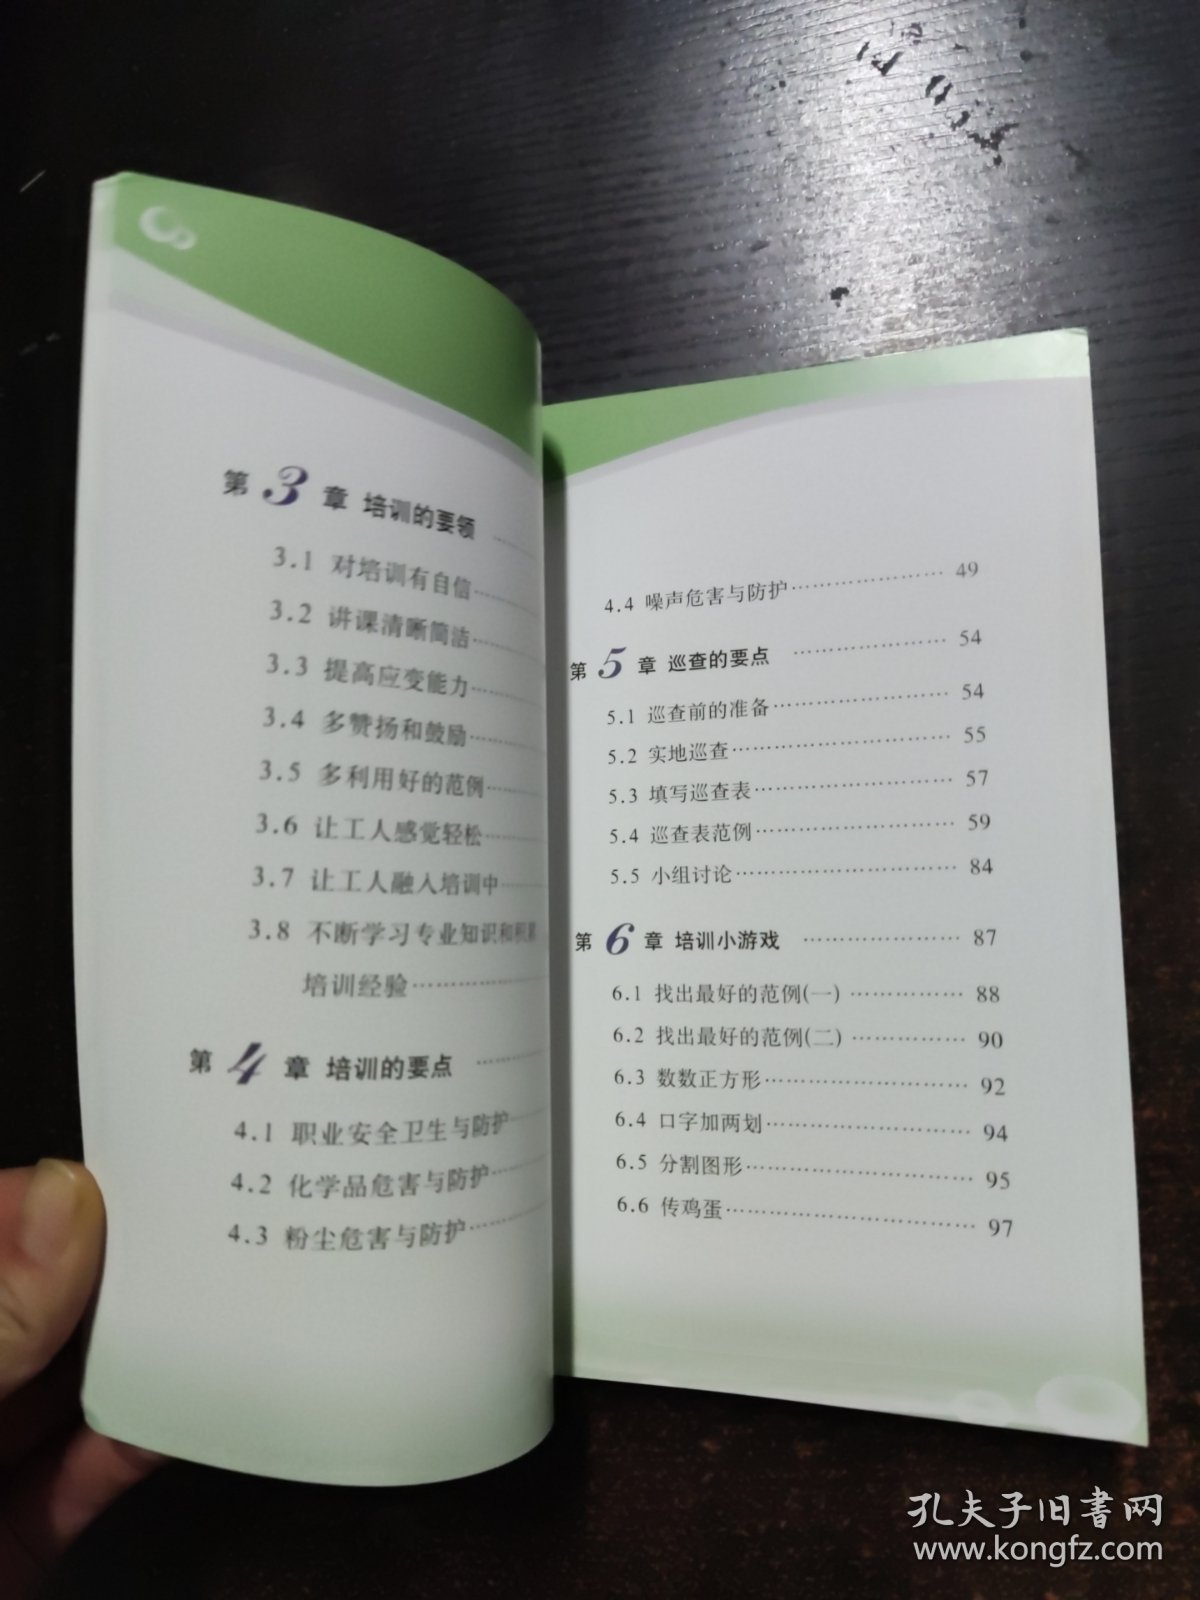 第3章 培训的要领
3.1 对培训有自信
3.2 讲课清晰简洁
3.3 提高应变能力
3.4 多赞扬和鼓励
3.5 多利用好的范例
3.6 让工人感觉轻松
3.7 让工人融入培训中
3.8 不断学习专业知识和积累
培训经验
第4章 培训的要点
4.1 职业安全卫生与防护
4.2 化学品危害与防护
4.3 粉尘危害与防护
4.4 噪声危害与防护 49
第5章 巡查的要点 54
5.1 巡查前的准备 54
5.2 实地巡查 55
5.3 填写巡查表 57
5.4 巡查表范例 59
5.5 小组讨论 84
第6章 培训小游戏 87
6.1 找出最好的范例(一) 88
6.2 找出最好的范例(二) 90
6.3 数数正方形 92
6.4 口字加两划 94
6.5 分割图形 95
6.6 传鸡蛋 97
孔夫子旧书网
www.kongfz.com